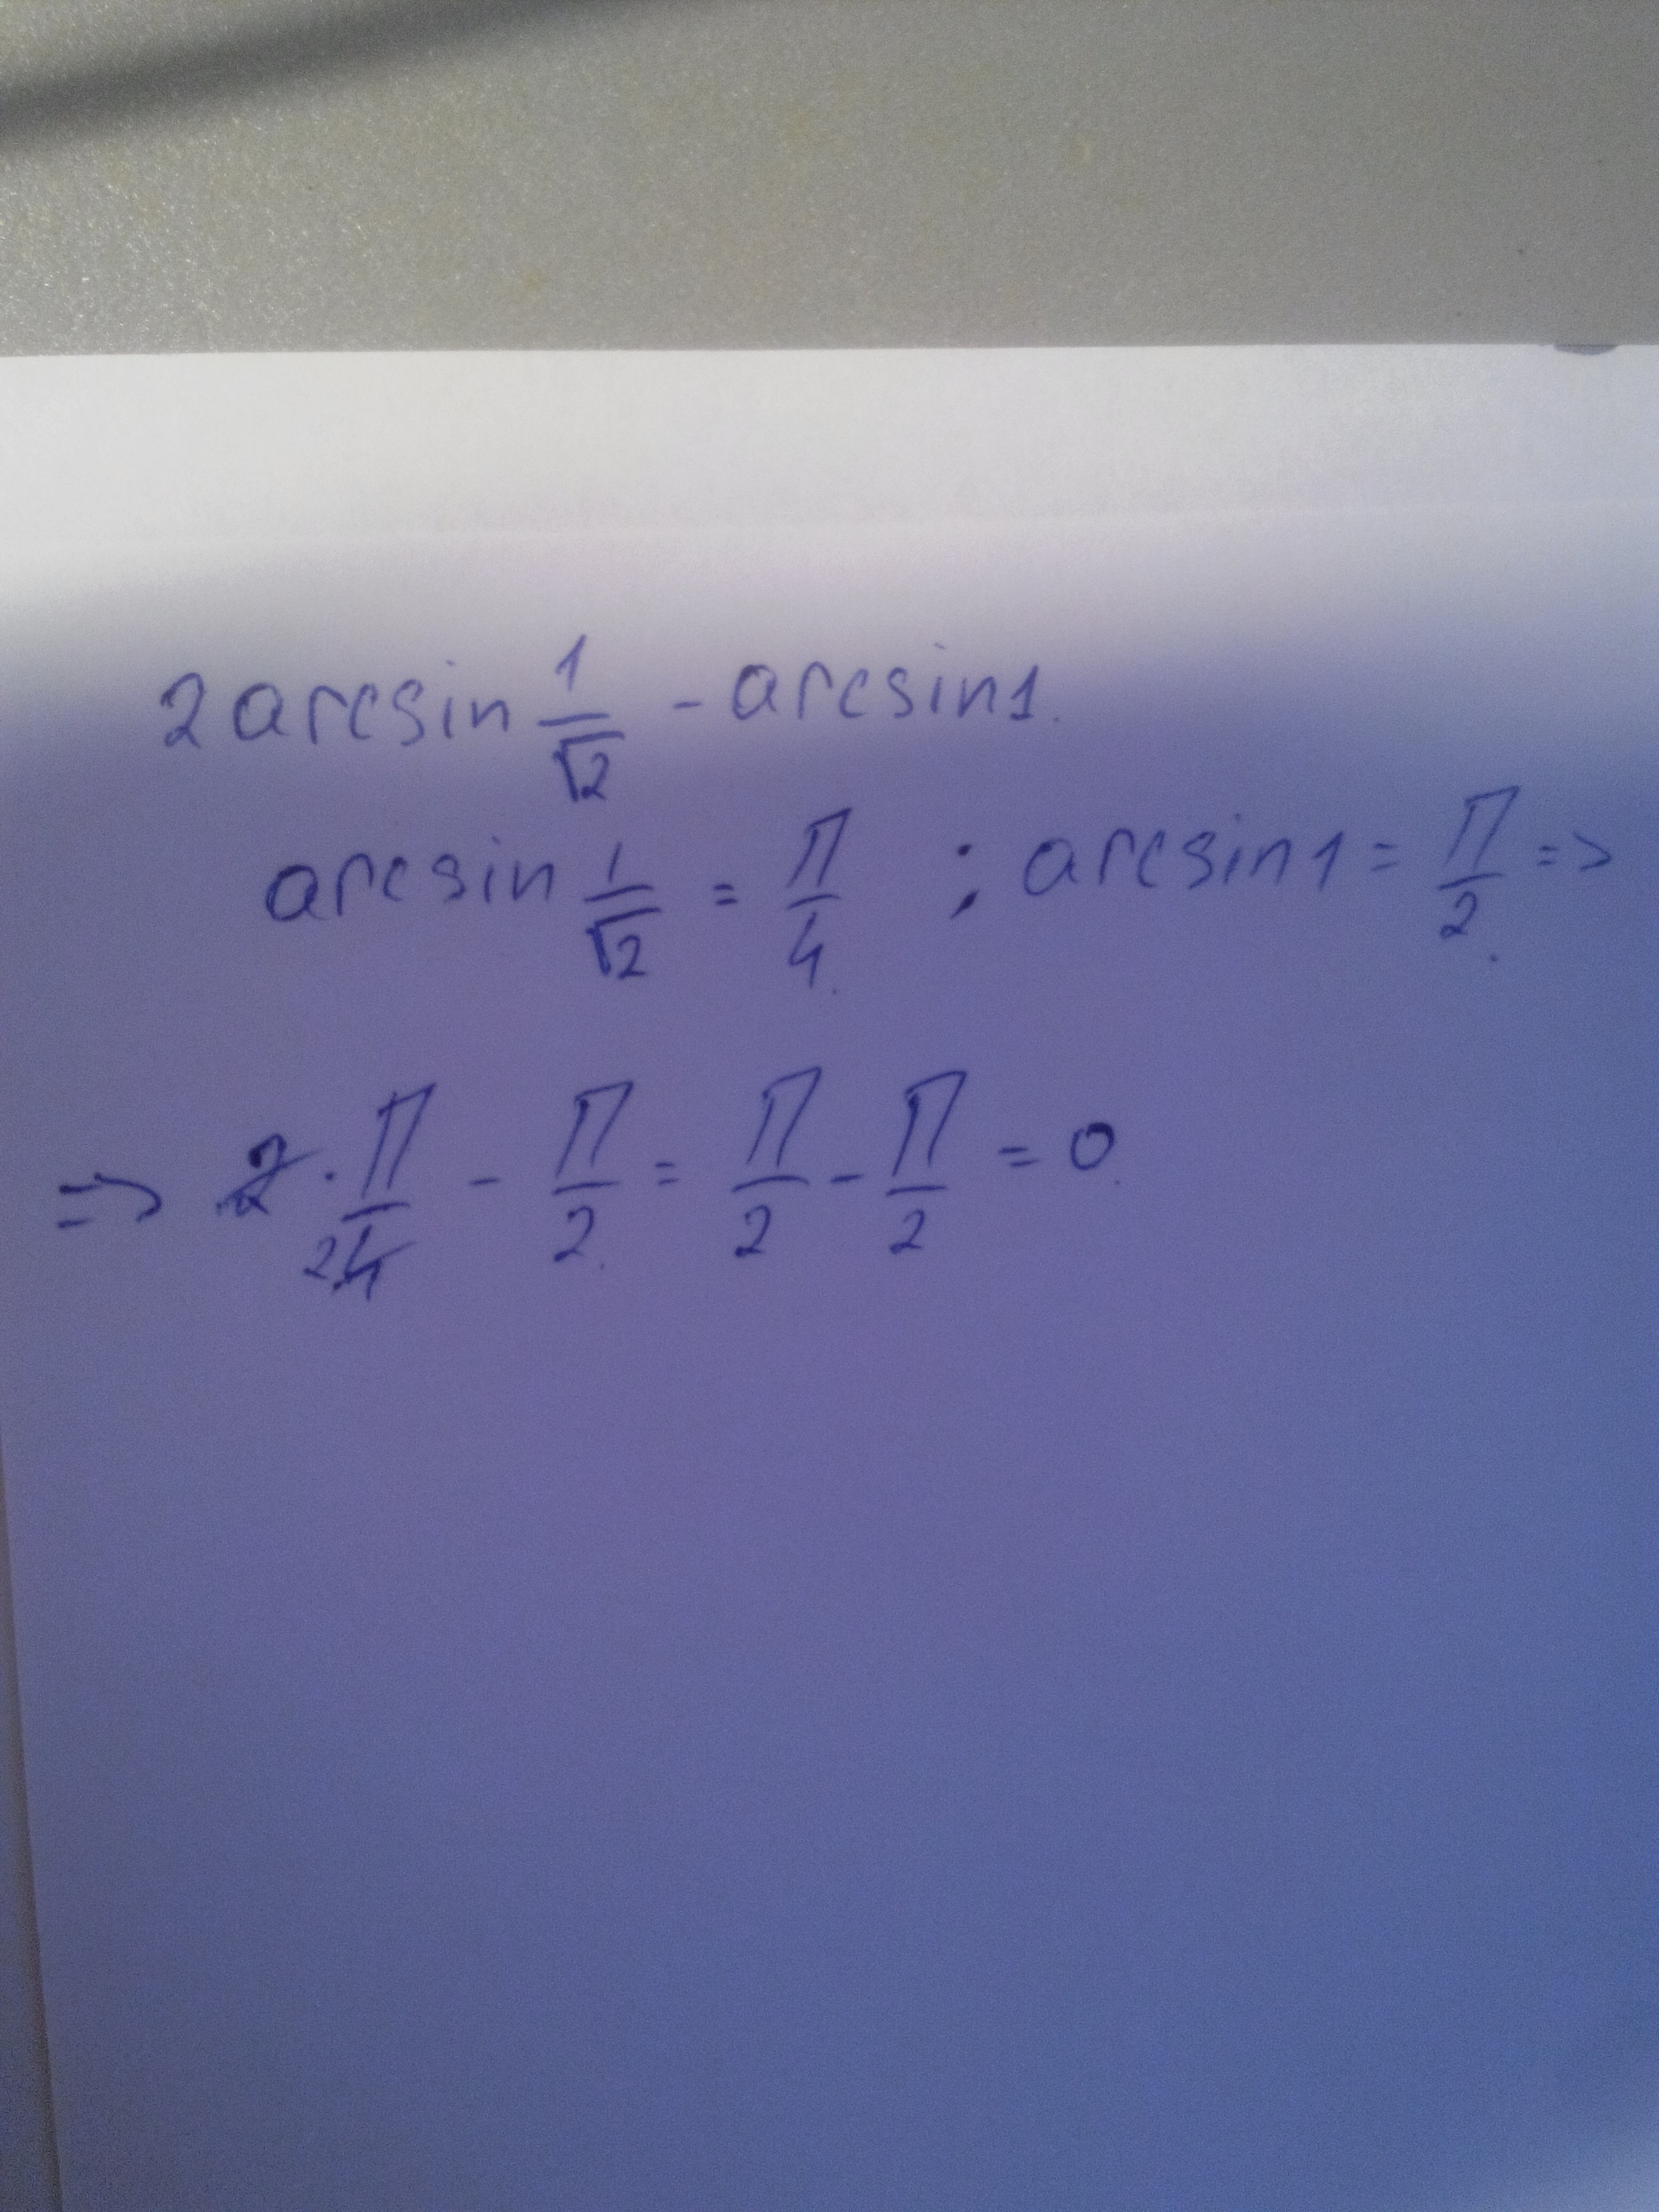 2 arcsin 1/√2 - arcsin1.
arcsin 1/√2 = π/4 ; arcsin1 = π/2 =>
=> 2 · π/24 - π/2 = π/2 - π/2 = 0